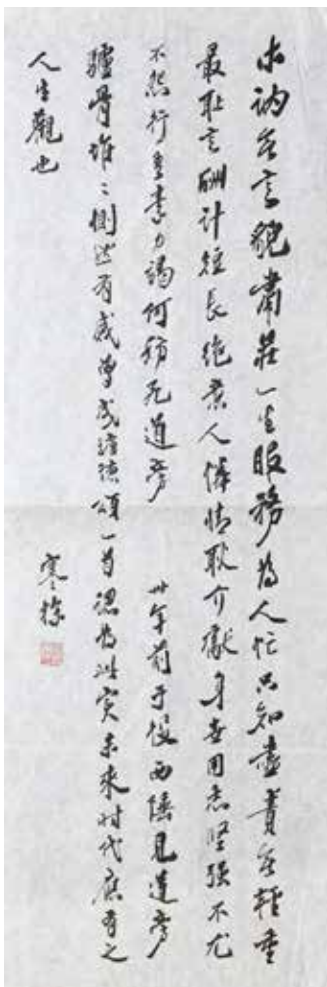 木讷无言貌肃庄一生服务为人忙只知尽责无轻重
最耻言酬计短长绝意人怜情耿介献身世用志坚强不尤
不怨行吾素力竭何妨死道旁　卅年前于役西陲见道旁
驴骨堆堆恻然有感曾成诗颂一首认为此实未来时代应有之
人生观也　寒